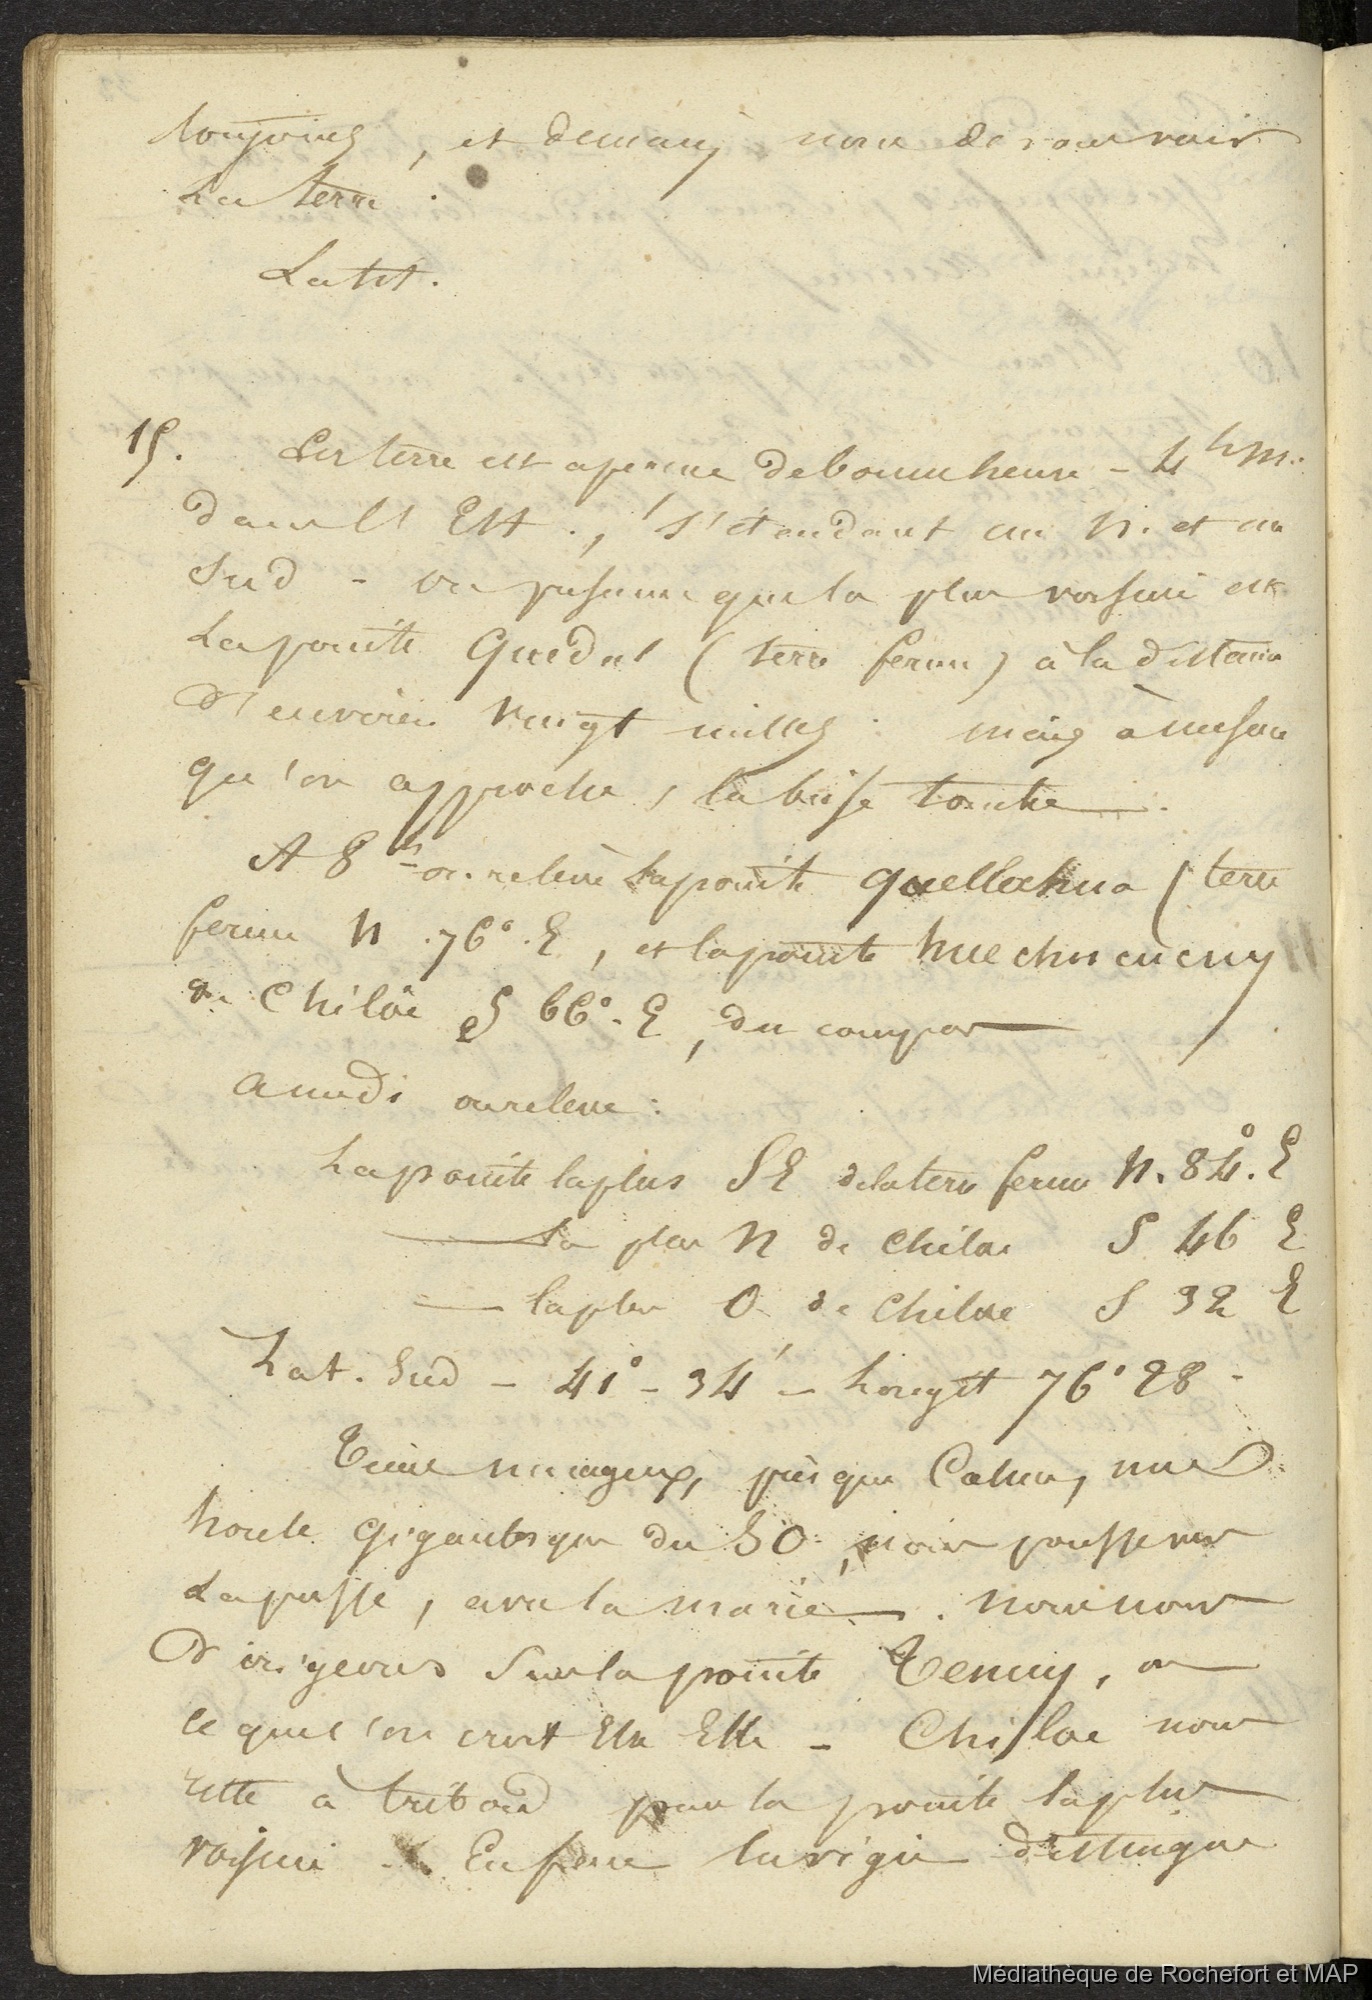 toujours, et demain nous devons voir
la terre.
Latit.
15. La terre est aperçue de bonne heure - 4 h m.
dans l'Est., s'étendant au N. et au
Sud - on présume que la plus voisine est
la pointe Quedal (terre ferme) à la distance
d'environ vingt milles : mais à mesure
qu'on approche, la brise tombe.
A 8 h on relève la pointe Quellahua (terre
ferme N. 76°. E, et la pointe Huechucucuy
de Chiloe S 66°. E, du compas
A midi on relève :
La pointe la plus SE de la terre ferme N. 84°. E
— la plus N de Chiloe S 46 E
— la plus O de Chiloe S 32 E
Lat. Sud - 41° - 34' - Longit 76° 28 -
Tems nuageux, presque Calme, une
houle gigantesque du SO, nous pousse vers
la passe, avec la marée. Nous nous
dirigeons sur la pointe Tenuy, ou
ce que l'on croit être Elle - Chiloe nous
reste à tribord par la pointe la plus
voisine - Enfin la vigie distingue
Médiathèque de Rochefort et MAP